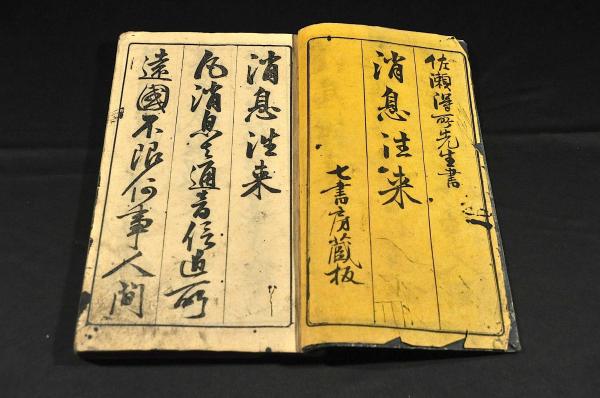 佐瀬得所先生書
消息往来
七書房蔵板
消息往来
凡消息者通音信近所
遠國不限何事人間